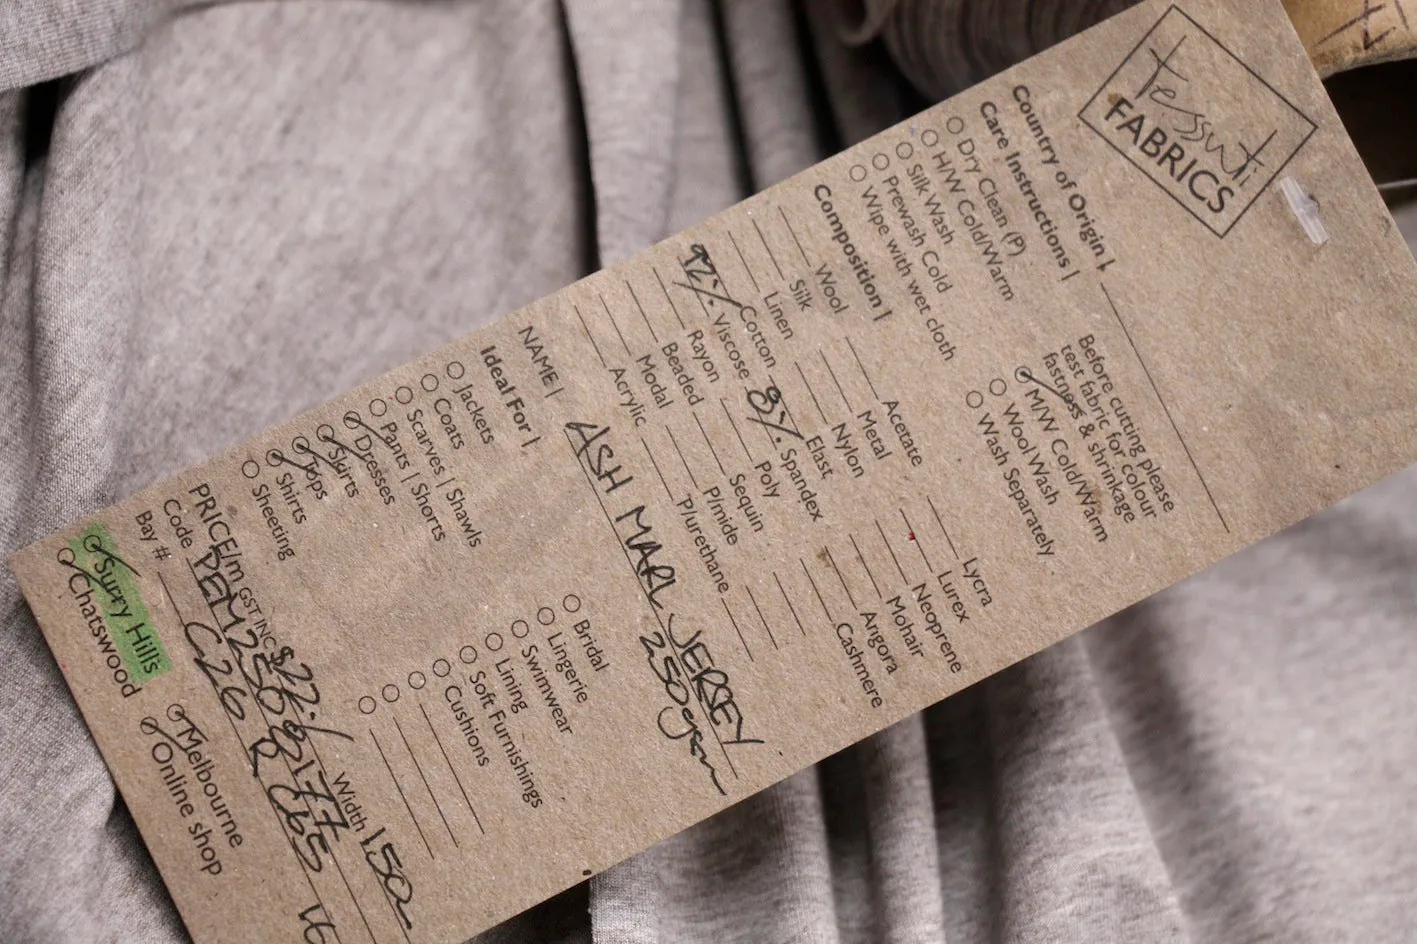 tessuti
FABRICS
Country of Origin |
Care Instructions |
Dry Clean (P)
H/W Cold/Warm
Silk Wash
Prewash Cold
Wipe with wet cloth
Before cutting please
test fabric for colour
fastness & shrinkage
M/W Cold/Warm
Wool Wash
Wash Separately
Composition |
Wool Acetate Lycra
Silk Metal Lurex
Linen Nylon Neoprene
Cotton Elast Mohair
92% Viscose 8% Spandex Angora
Rayon Poly Cashmere
Beaded Sequin
Modal P/mide
Acrylic P/urethane
NAME | ASH MARL JERSEY
250gsm
Ideal For |
Jackets Bridal
Coats Lingerie
Scarves | Shawls Swimwear
Pants | Shorts Lining
Dresses Soft Furnishings
Skirts Cushions
Tops
Shirts
Sheeting
PRICE/m GST INC Width 150
Code
Bay # C26 & C65
Surry Hills Melbourne
Chatswood Online shop